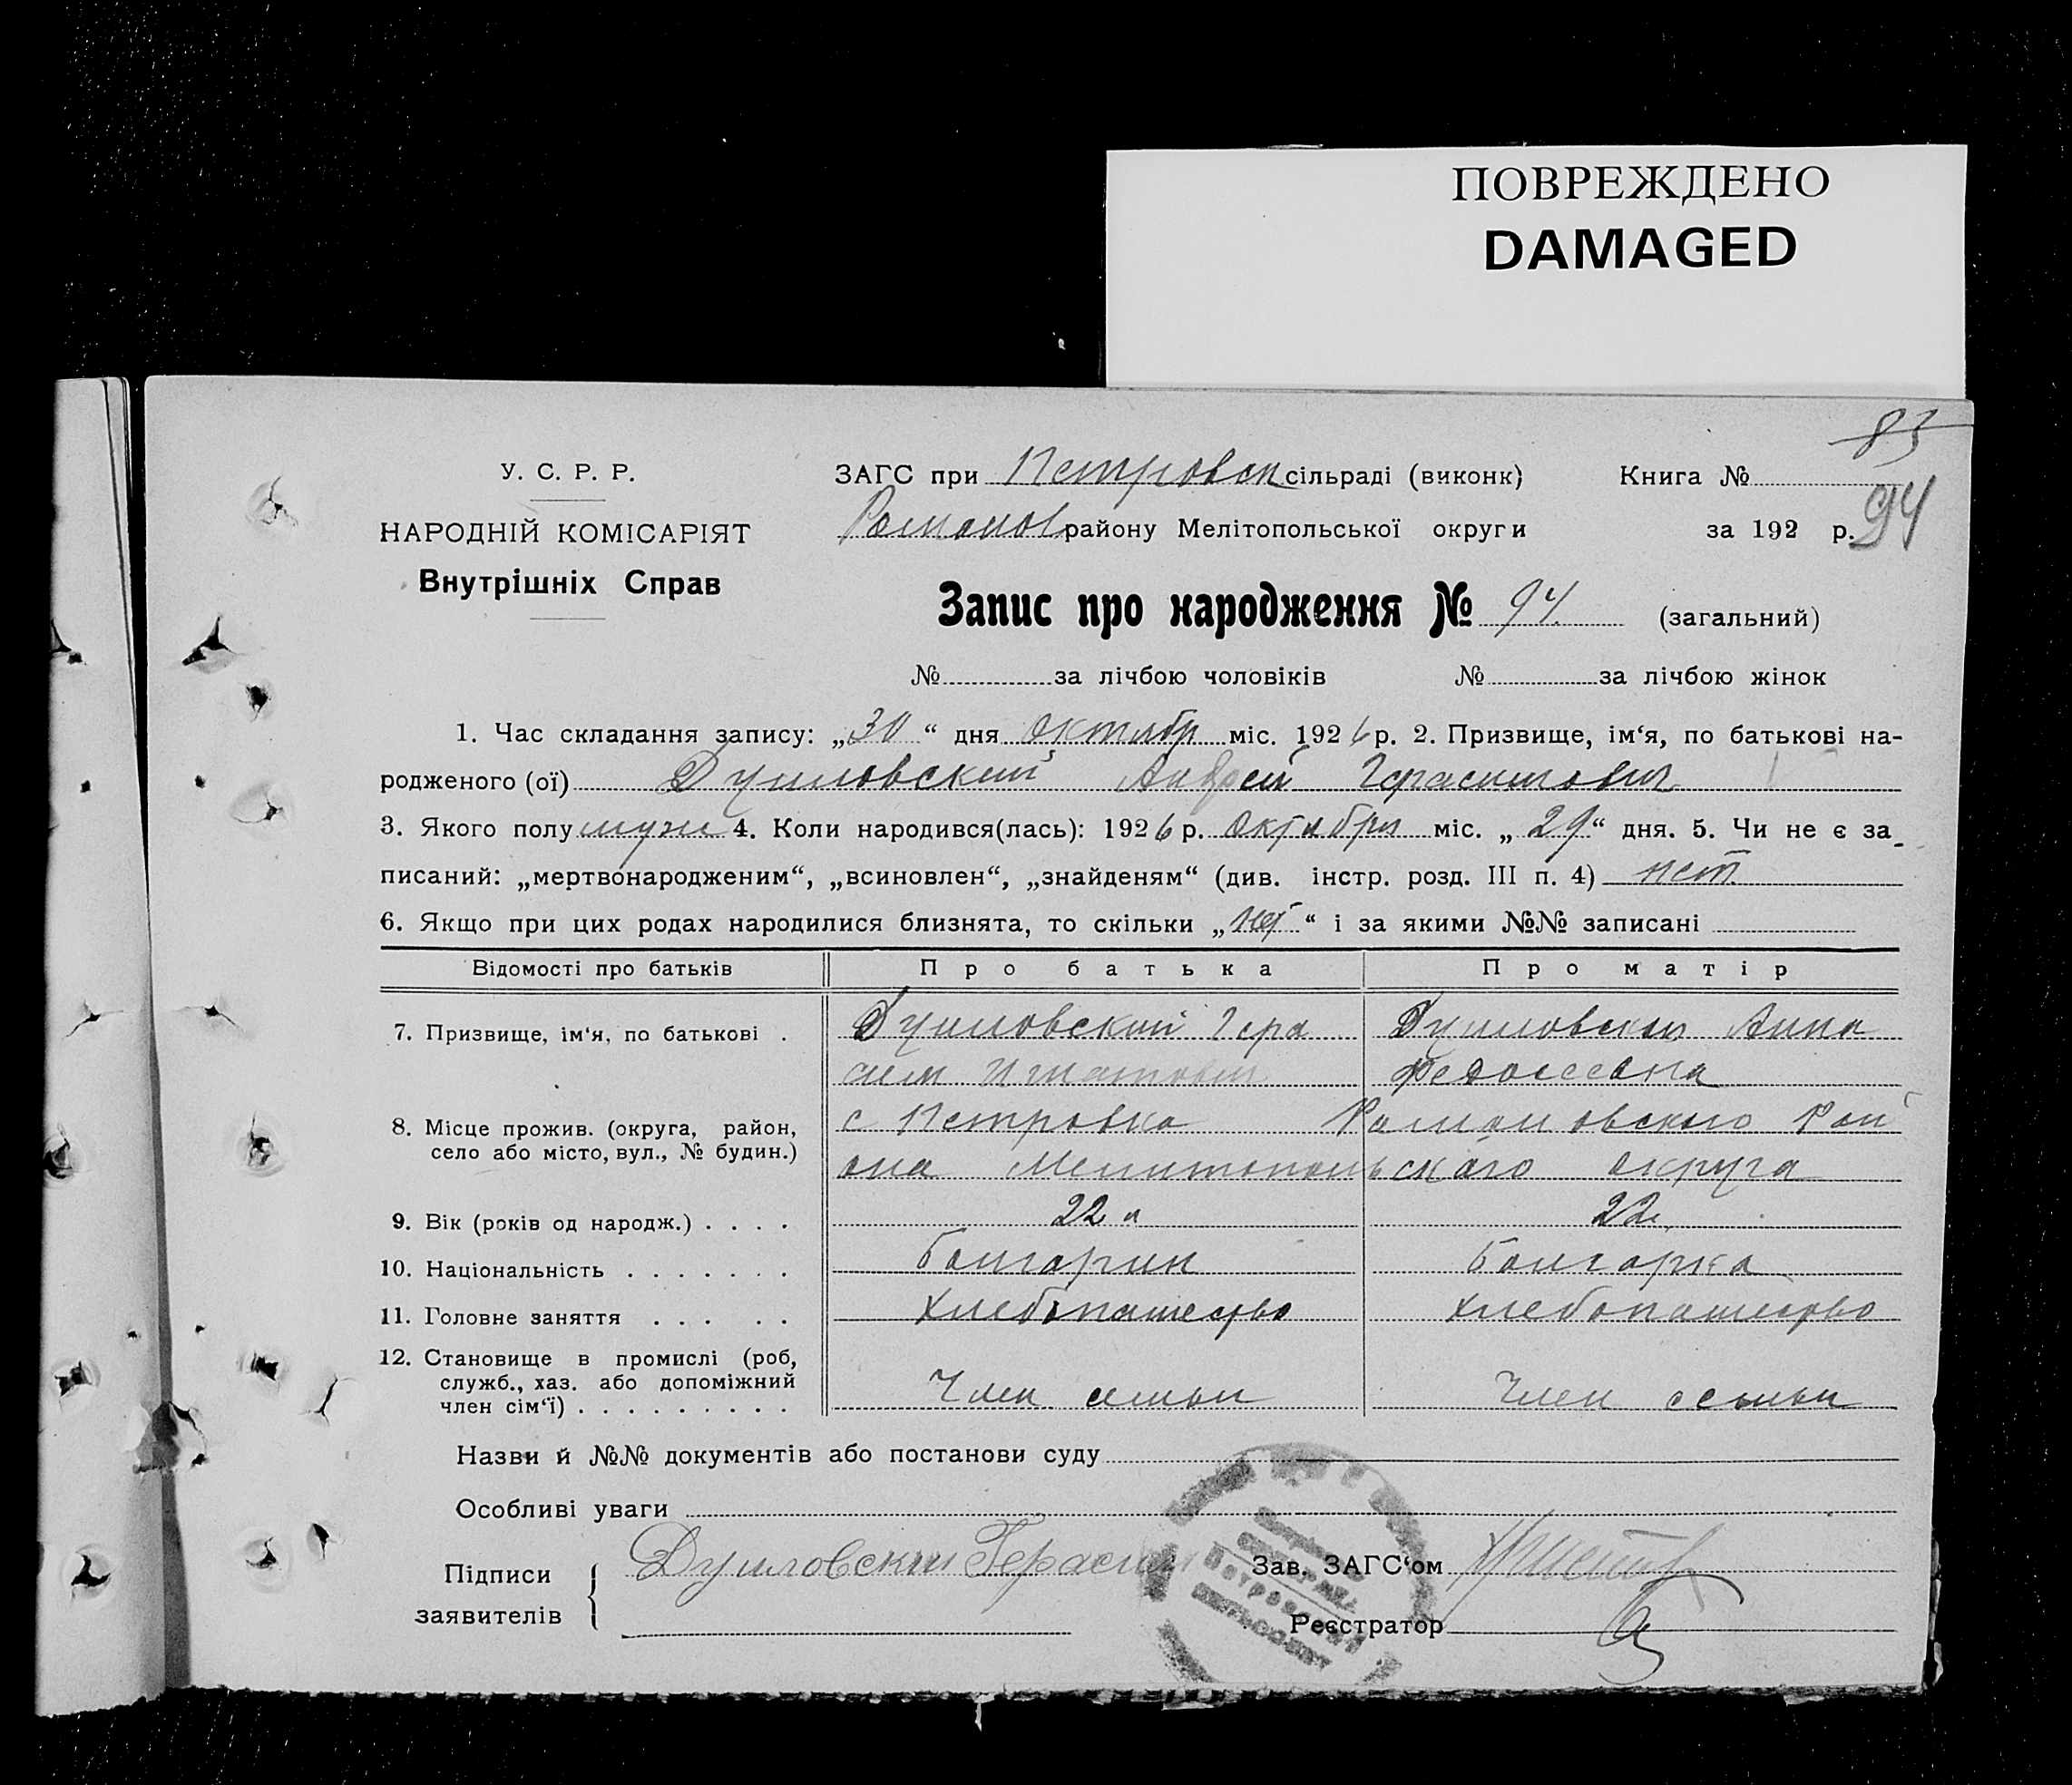 ПОВРЕЖДЕНО
DAMAGED
83
У. С. Р. Р.
ЗАГС при Петровск сільраді (виконк)
Книга №
94
НАРОДНІЙ КОМІСАРІЯТ
Романов району Мелітопольської округи
за 192 р.
Внутрішніх Справ
Запис про народження № 94. (загальний)
№ за лічбою чоловіків
№ за лічбою жінок
1. Час складання запису: „30“ дня октябр міс. 1926 р. 2. Призвище, ім‘я, по батькові на-
родженого (ої) Душловский Андрей Герасимович
3. Якого полу мужс 4. Коли народився(лась): 1926 р. октября міс. „29“ дня. 5. Чи не є за
писаний: „мертвонародженим“, „всиновлен“, „знайденям“ (див. інстр. розд. III п. 4) нет
6. Якщо при цих родах народилися близнята, то скільки „нет“ і за якими №№ записані
Відомості про батьків
Про батька
Про матір
7. Призвище, ім‘я, по батькові .
Душловский Гера
сим Игнатович
Душловская Анна
Федосеевна
8. Місце прожив. (округа, район,
село або місто, вул., № будин.)
с Петровка Романовского Рай
она Мелитопольского округа
9. Вік (років од народж.) . . . .
22 л
22 л
10. Національність . . . . . . .
болгарин
болгарка
11. Головне заняття . . . . .
хлебопашество
хлебопашество
12. Становище в промислі (роб,
служб., хаз. або допоміжний
член сім‘ї) . . . . . . . . .
Член семьи
Член семьи
Назви й №№ документів або постанови суду
Особливі уваги
Підписи
заявителів
Душловский Герасим
Зав. ЗАГС‘ом
Реєстратор